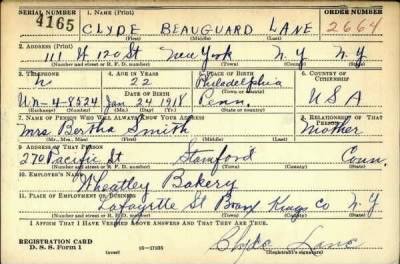 SERIAL NUMBER 1. NAME (Print) ORDER NUMBER
4165 CLYDE BEAUGUARD LANE 2664
(First) (Middle) (Last)
2. ADDRESS (Print)
111 W 120 St New York N.Y. N.Y
(Number and street or R. F. D. number) (Town) (County) (State)
3. TELEPHONE 4. AGE IN YEARS 5. PLACE OF BIRTH 6. COUNTRY OF CITIZENSHIP
22 Philadelphia
DATE OF BIRTH
Un-4-8524 Jan 24 1918 Penn. USA
(Exchange) (Number) (Mo.) (Day) (Yr.) (State or country)
7. NAME OF PERSON WHO WILL ALWAYS KNOW YOUR ADDRESS 8. RELATIONSHIP OF THAT PERSON
Mrs Bertha Smith Mother
(Mr., Mrs., Miss) (First) (Middle) (Last)
9. ADDRESS OF THAT PERSON
270 Pacific St Stamford Conn.
(Number and street or R. F. D. number) (Town) (County) (State)
10. EMPLOYER'S NAME
Wheatley Bakery
11. PLACE OF EMPLOYMENT OR BUSINESS
Lafayette St Kings Co N.Y
(Number and street or R. F. D. number) (Town) (County) (State)
I AFFIRM THAT I HAVE VERIFIED ABOVE ANSWERS AND THAT THEY ARE TRUE.
REGISTRATION CARD
D. S. S. Form 1 (over) 16—17105 Clyde Lane
(Registrant's signature)